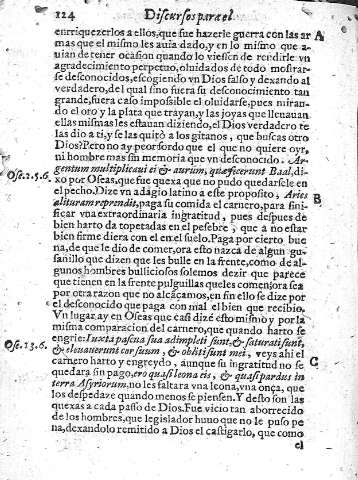 124 Discursos para el
enrriquezerlos a ellos, que fue hazerle guerra con las ar A
mas que el mismo les auia dado, y en lo mismo que a-
uian de tener ocasion quando lo viessen de rendirle vn
agradecimiento perpetuo, oluidados de todo mostrar-
se desconocidos, escogiendo vn Dios falso y dexando al
verdadero, del qual sino fuera su desconocimiento tan
grande, fuera caso impossible el oluidarse, pues miran-
do el oro y la plata que trayan, y las joyas que lleuauan
ellas mismas les estauan diziendo, el Dios verdadero te
las dio a ti, y se las quitò a los gitanos, que buscas otro
Dios? Pero no ay peor sordo que el que no quiere oyr,
ni hombre mas sin memoria que vn desconocido. Ar-
Ose. 2. 5. 6. gentum multiplicaui ei & aurum, quæ fecerunt Baal, di-
xo por Oseas, que fue quexa que no pudo quedarsele en
el pecho. Dize vn adagio latino a este proposito, Aries B
alituram reprendit, paga su comida el carnero, para sini-
ficar vna extraordinaria ingratitud, pues despues de
bien harto da topetadas en el pesebre, que a no estar
bien firme diera con el en el suelo. Paga por cierto bue
na, de que le dio de comer, ora esto nazca de algun gu-
sanillo que dizen que les bulle en la frente, como de al-
gunos hombres bulliciosos solemos dezir que parece
que tienen en la frente pulguillas que les come, ora sea
por otra razon que no alcãçamos, en fin ello se dize por
el desconocido que paga con mal el bien que recibio.
Vn lugar ay en Oseas que casi dizè esto mismo y por la
misma comparacion del carnero, que quando harto se
Ose. 13. 6. engrie: Iuxta pascua sua adimpleti sunt, & saturati sunt,
& eleuauerunt cor suum, & obliti sunt mei, veys ahi el C
carnero harto y engreydo, aunque su ingratitud no se
quedara sin pago, ero quasi leona eis, & quasi pardus in
terra Asyriorum, no les faltara vna leona, vna onça, que
los despedaze quando menos se piensen. Y desto son las
quexas a cada passo de Dios. Fue vicio tan aborrecido
de los hombres, que legislador huuo que no le puso pe
na, dexandolo remitido a Dios el castigarlo, que como
el